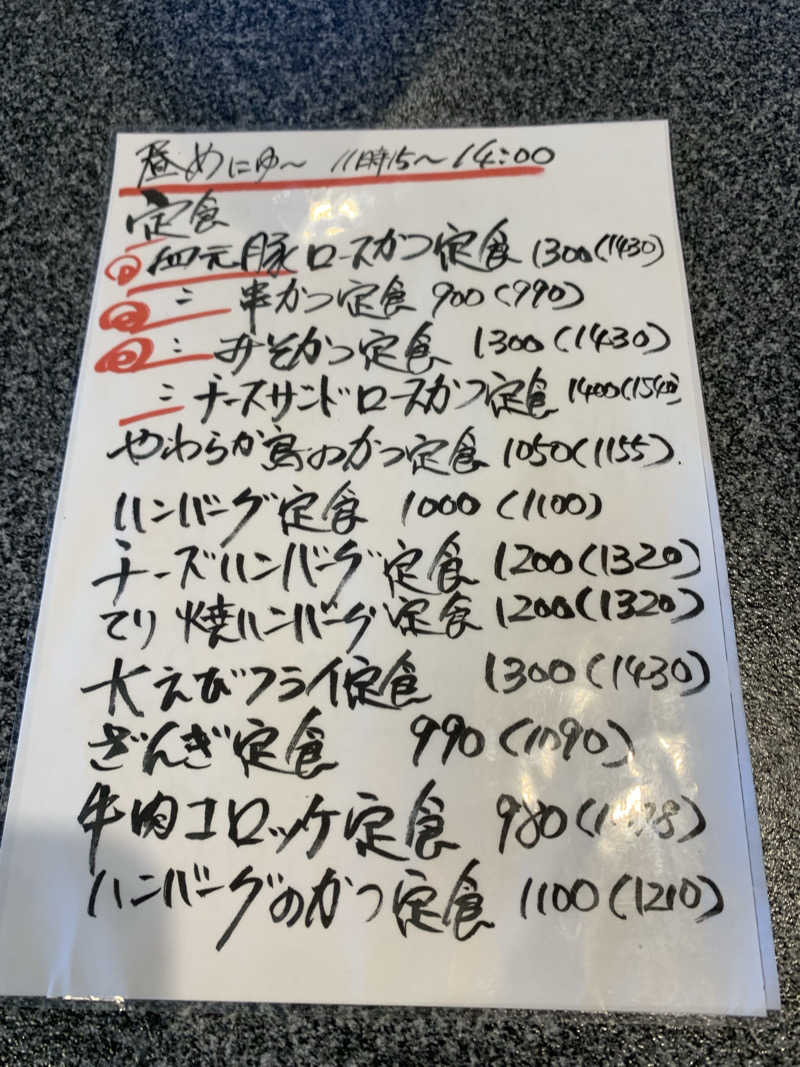 昼めにゅ〜 11時15〜14:00
定食
① 四元豚ロースかつ定食 1300(1430)
② 〃 串かつ定食 900(990)
③ 〃 みそかつ定食 1300(1430)
〃 チーズサンドロースかつ定食 1400(1540)
やわらか鳥のかつ定食 1050(1155)
ハンバーグ定食 1000(1100)
チーズハンバーグ定食 1200(1320)
てり焼ハンバーグ定食 1200(1320)
大えびフライ定食 1300(1430)
ざんぎ定食 990(1090)
牛肉コロッケ定食 980
ハンバーグのかつ定食 1100(1210)